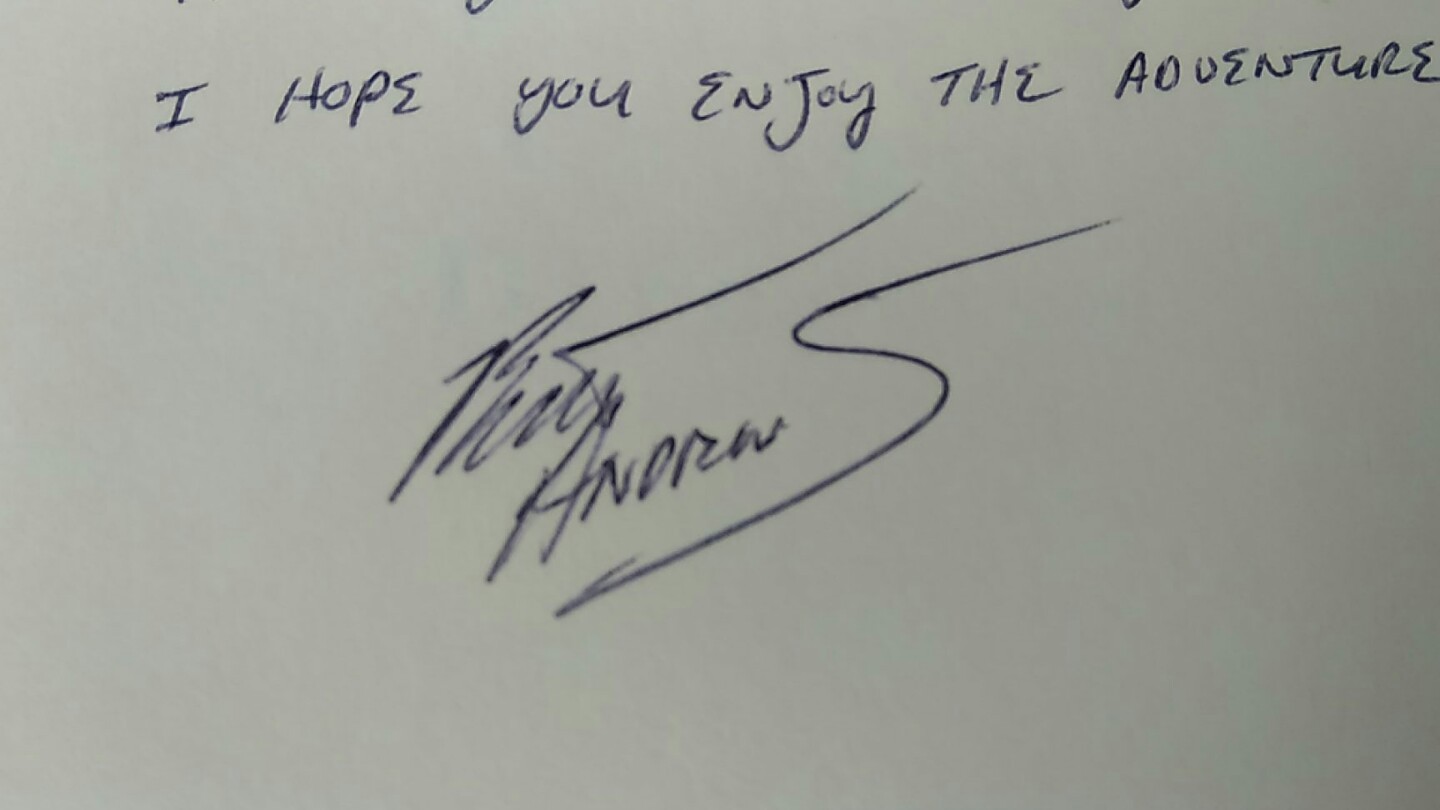 I HOPE YOU ENJOY THE ADVENTURE
ANDREWS